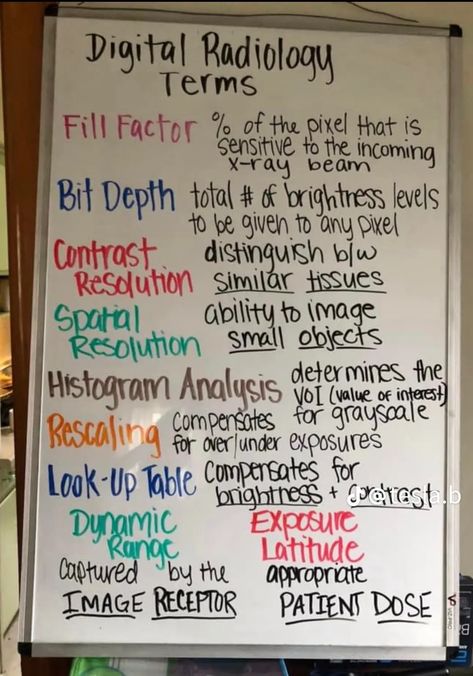 Digital Radiology
Terms
Fill Factor % of the pixel that is
sensitive to the incoming
x-ray beam
Bit Depth total # of brightness levels
to be given to any pixel
Contrast distinguish b/w
Resolution similar tissues
Spatial ability to image
Resolution small objects
Histogram Analysis determines the
VOI (value of interest)
for grayscale
Rescaling compensates
for over/under exposures
Look-Up Table compensates for
brightness + contrast
Dynamic
Range
captured by the
IMAGE RECEPTOR
Exposure
Latitude
appropriate
PATIENT DOSE